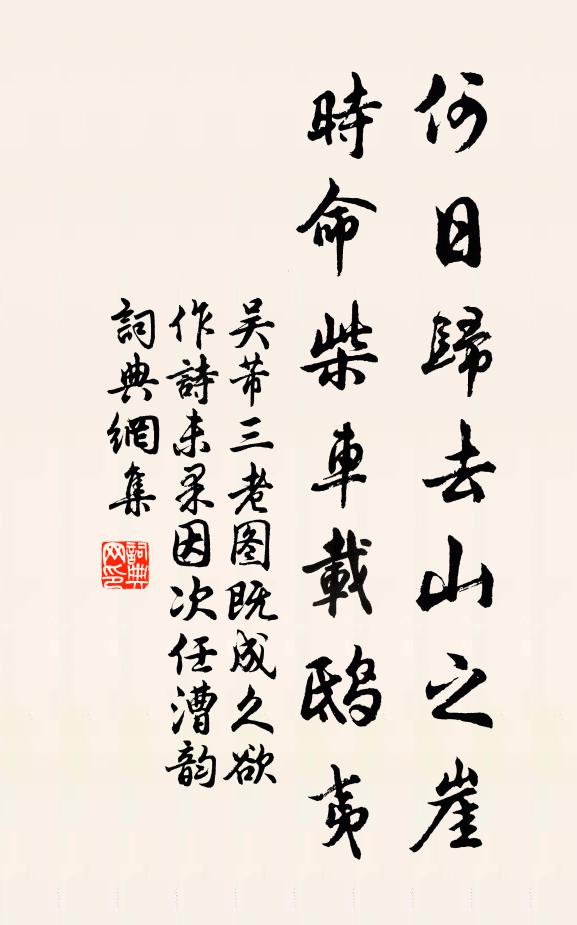 何日歸去山之崖
時命柴車載鴟夷
吴芾三老图既成久欲
作詩未果因次任漕韵
詞典網集
詞典网印